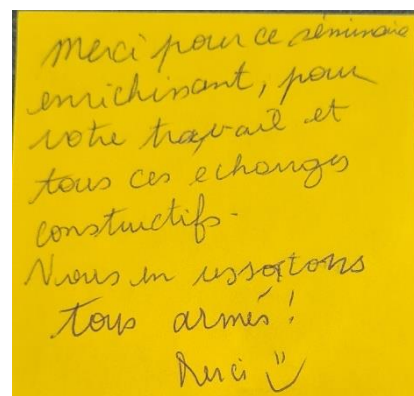 Merci pour ce séminaire
enrichissant, pour
votre travail et
tous ces echanges
constructifs.
Nous en ressortons
tous armés !
Merci